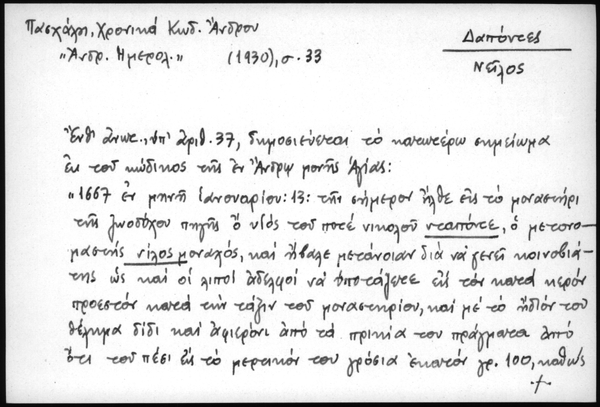 Πασχάλη, Χρονικά Κωδ. Ἄνδρου
"Ἀνδρ. Ἡμερολ." (1930), σ. 33
Δαπόντες
Νεῖλος
Ἔνθ' ἀνωτ., ὑπ' ἀριθ. 37, δημοσιεύεται τὸ κατωτέρω σημείωμα
ἐκ τοῦ κώδικος τῆς ἐν Ἄνδρῳ μονῆς Ἁγίας:
"1667 ἐν μηνὴ ἰανουαρίου: 13: τὴν σήμερον ἦλθε εἰς τὸ μοναστήρι
τῆς ζωοδόχου πηγῆς ὁ υἱὸς τοῦ ποτὲ νικολοῦ νταπόντε, ὁ μετονο-
μαστὴς νίλος μοναχός, καὶ ἤβαλε μετάνοιαν διὰ νὰ γενεῖ κοινοβιά-
της ὡς καὶ οἱ λιποὶ ἀδελφοὶ νὰ ὑποτάζετε εἰς τὸν κατὰ κερὸν
προεστὸν κατὰ τὴν τάξιν τοῦ μοναστηρίου, καὶ μὲ τὸ ἤδιόν του
θέλημα δίδι καὶ ἀφιερόνι ἀπὸ τὰ πρικιὰ του πράγματα ἀπὸ
ὅτι τοῦ πέσι εἰς τὸ μερτικόν του γρόσια ἑκατὸν γρ. 100, καθὼς